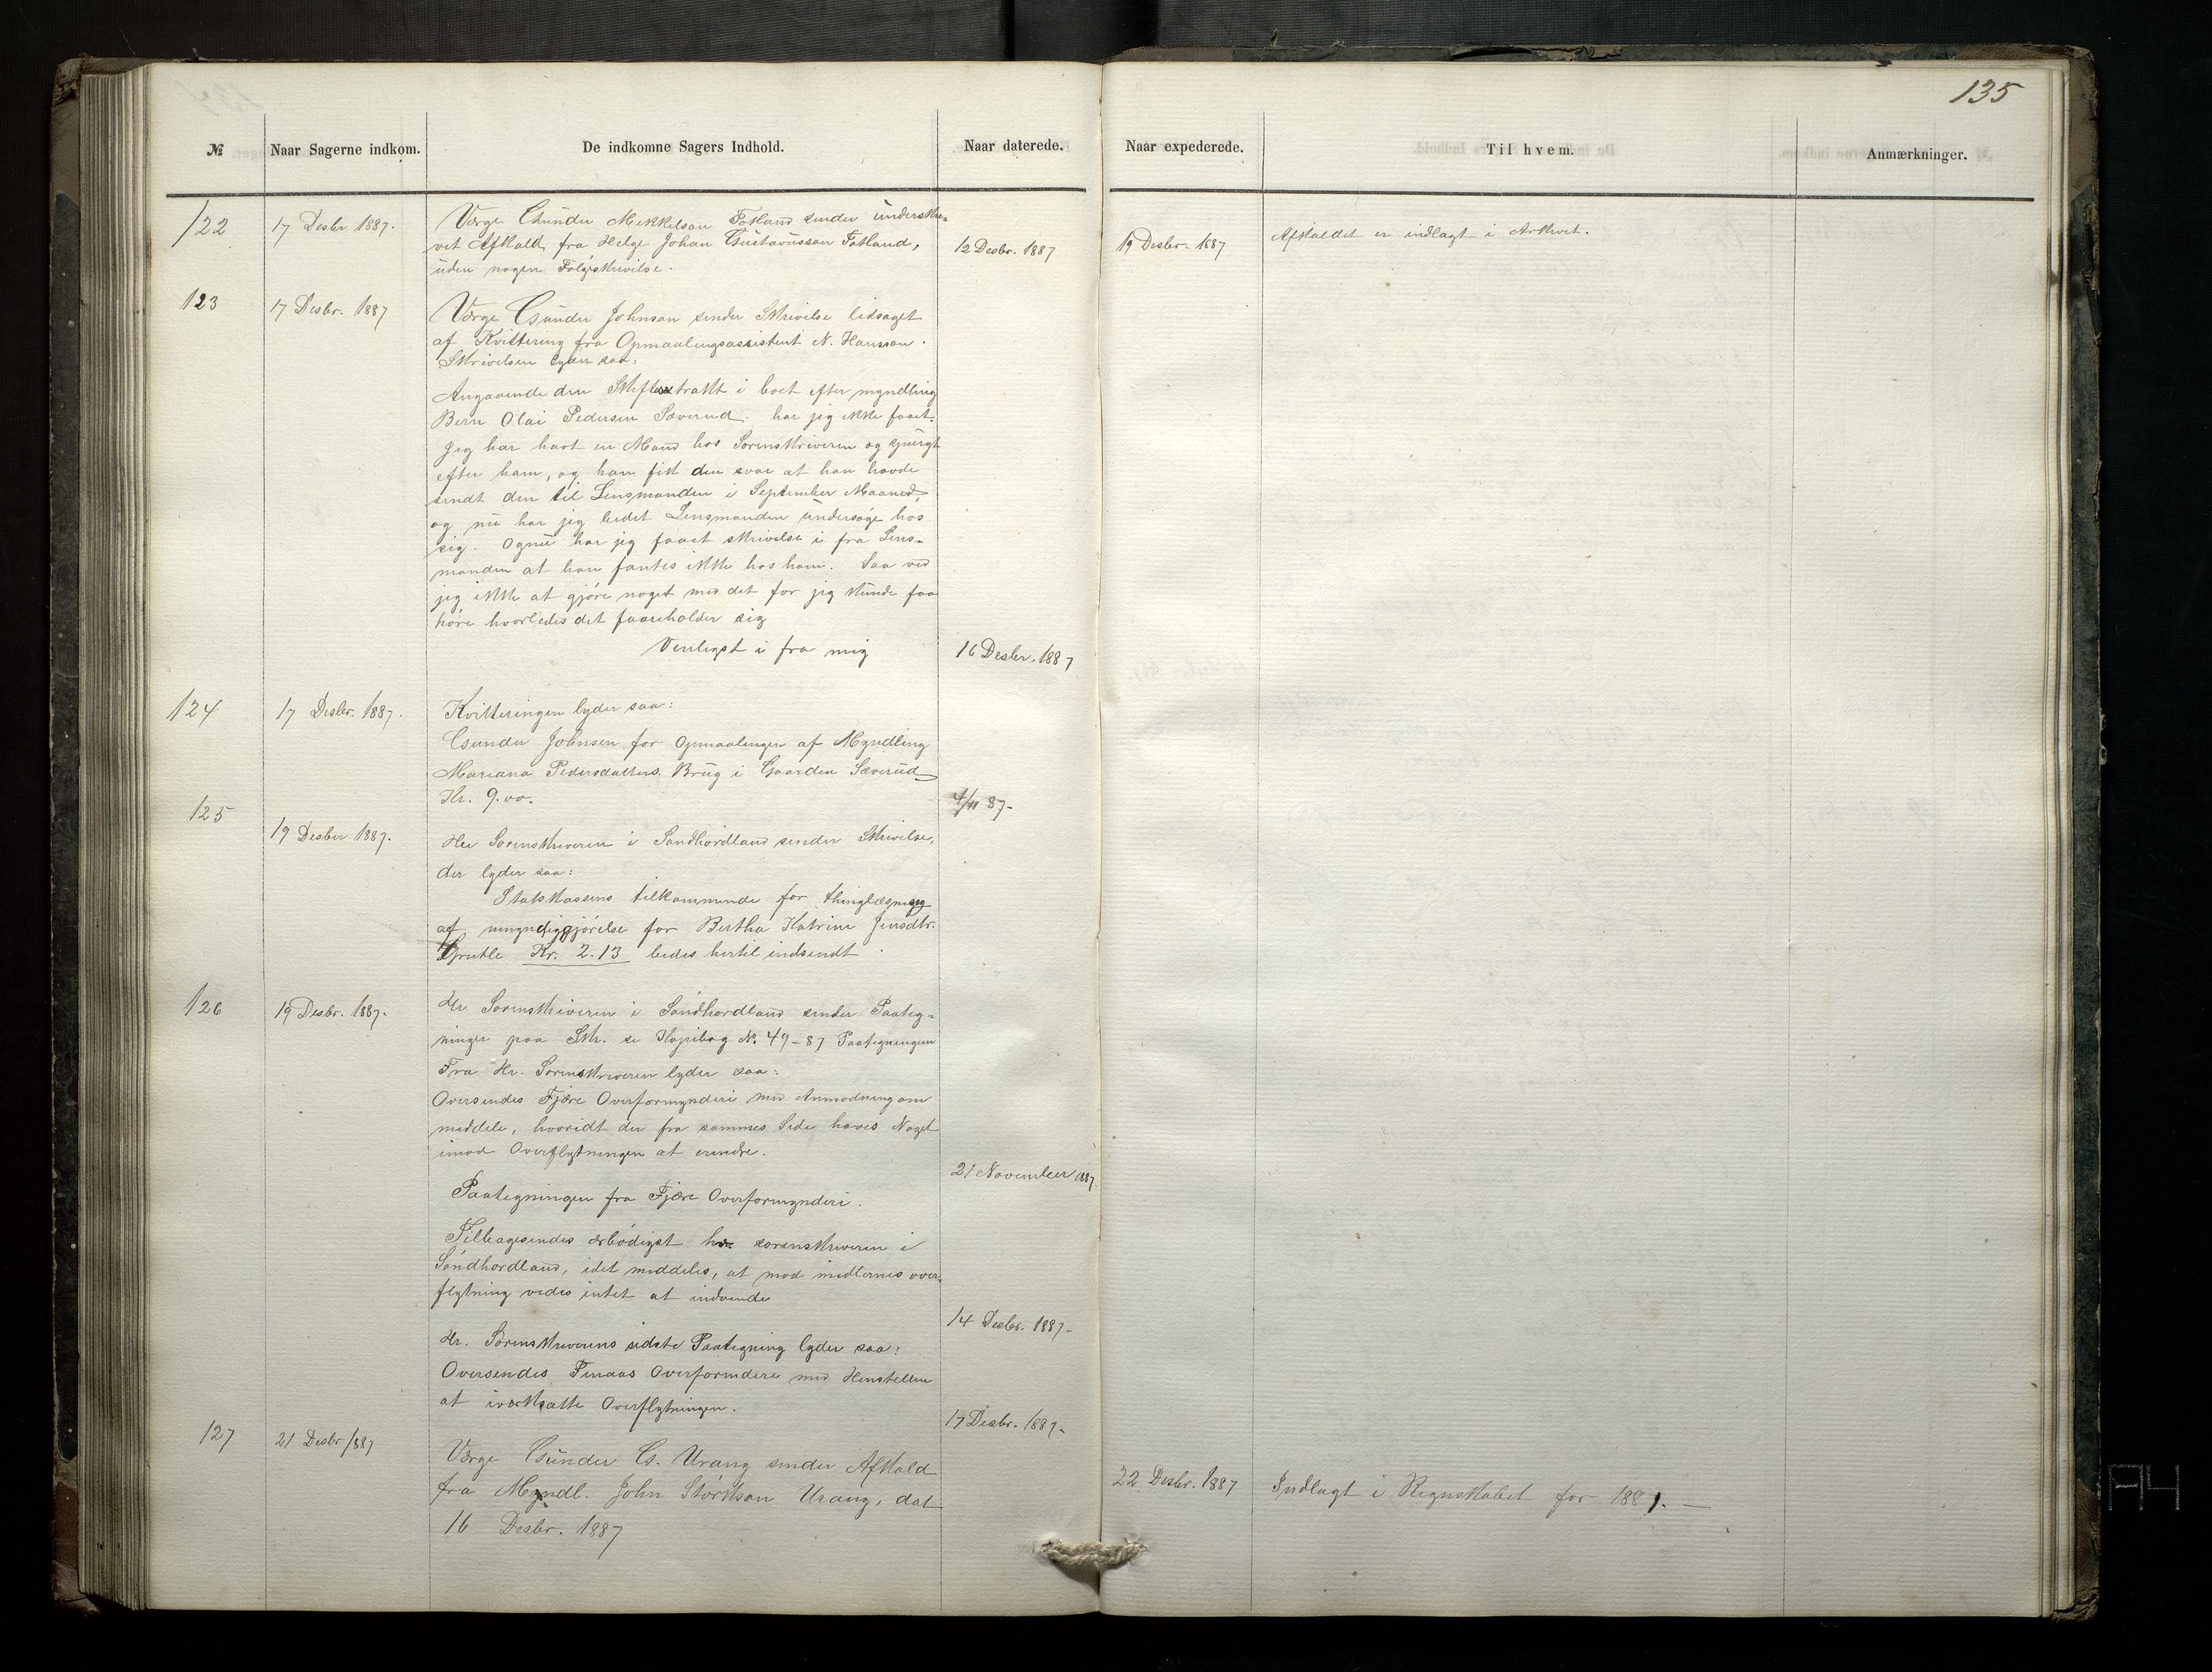 135
№ Naar Sagerne indkom. De indkomne Sagers Indhold. Naar daterede. Naar expederede. Til hvem. Anmærkninger.
122 17 Desbr 1887. Værge Gunder Mikkelson Fatland sender underskre-
vet Afkald fra Helge Johan Gustavusson Fatland, 12 Desbr. 1887 19 Desbr. 1887 Afkaldet er indlagt i Arkivet.
uden nogen Følgeskrivelse.
123 17 Desbr. 1887 Værge Gunder Johnson sender Skrivelse ledsaget
af Kvittering fra Opmaalingsassistent N. Hansson.
Skrivelsen lyder saa:
Angaaende den Skifteextrakt i boet efter myndling
Bern Olai Pedersen Sæverud har jeg ikke faaet.
Jeg har havt en Mand hos Sorenskriveren og spurgt
efter ham, og han fik den svar at han havde
sendt den til Lensmanden i September Maaned,
og nu har jeg bedet Lensmanden undersøge hos
sig. Ognu har jeg faaet skrivelse i fra Lens-
manden at han fantes ikke hos ham. Saa ved
jeg ikke at gjøre noget med det for jeg kunde faa
høre hvorledes det faareholder sig
Venligst i fra mig 16 Desbr. 1887
124 17 Desbr. 1887. Kvitteringen lyder saa:
Gunder Johnsen for Opmaalingen af Myndling
Mariana Pedersdatters Brug i Gaarden Sæverud
Kr. 9.00. 4/11 87.
125 19 Desber 1887. Her Sorenskriveren i Søndhordland sender Skrivelse,
der lyder saa:
Statskassens tilkommende for thinglæsning
af umyndiggjørelse for Bertha Katrine Jensdtr.
Grutle Kr. 2.13 bedes hertil indsendt
126 19 Desbr. 1887. Hr Sorenskriveren i Søndhordland sender Paateg-
ninger paa Skr. se Kopibog No. 49-87 Paategningen
Fra Hr. Sorenskriveren lyder saa:
Oversendes Fjære Overformynderi med Anmodning om
meddele, hvorvidt der fra sammes Side haves Noget
imod Overflytningen at erindre.
21 November 1887.
Paategningen fra Fjære Overformynderi.
Tilbagesendes ærbødigst hr. sorenskriveren i
Søndhordland, idet meddeles, at mod midlernes over-
flytning vedes intet at indvende
14 Desbr. 1887.
Hr. Sorenskriverens sidste Paategning lyder saa:
Oversendes Finaas Overformderi med Henstellen
at iværksætte Overflytningen.
17 Desbr. 1887.
127 21 Desbr 1887 Værge Gunder G. Urang sender Afkald
fra Myndl. John Størkson Urang, dat 22 Desbr. 1887 Indlagt i Regnskabet for 1887.
16 Desbr. 1887